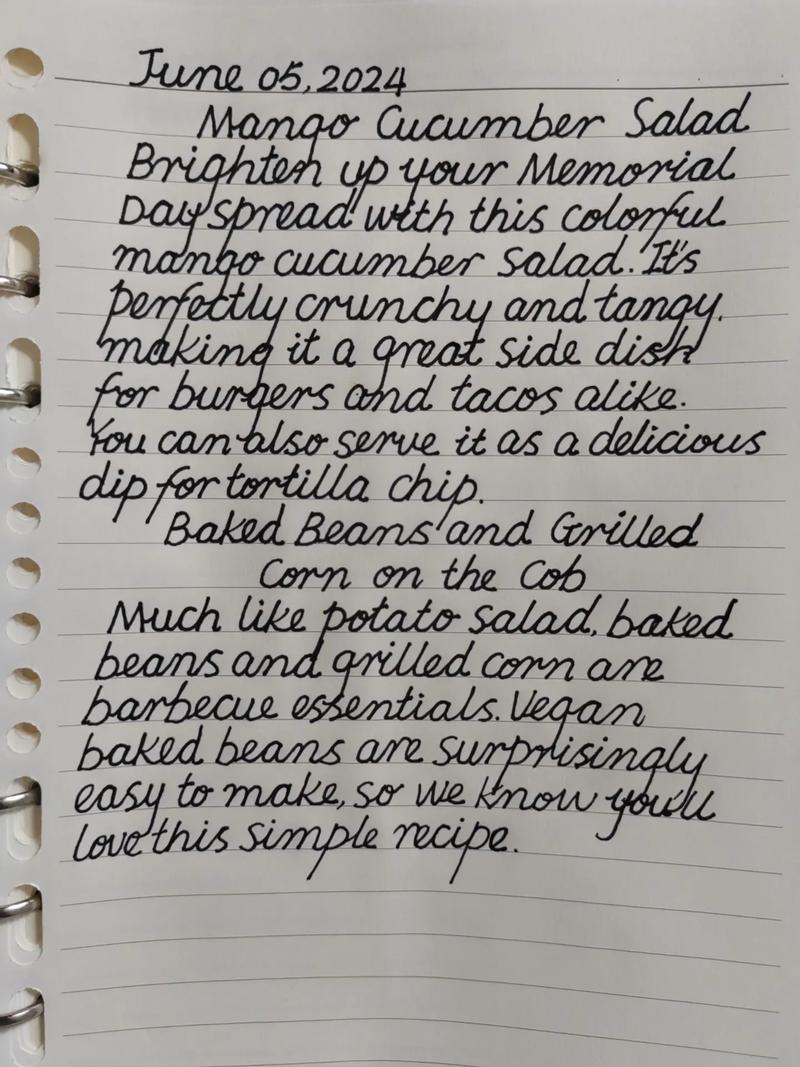 June 05, 2024
Mango Cucumber Salad
Brighten up your Memorial
Day spread with this colorful
mango cucumber salad. It's
perfectly crunchy and tangy.
making it a great side dish
for burgers and tacos alike.
You can also serve it as a delicious
dip for tortilla chip.
Baked Beans and Grilled
Corn on the Cob
Much like potato salad, baked
beans and grilled corn are
barbecue essentials. Vegan
baked beans are surprisingly
easy to make, so we know you'll
love this simple recipe.